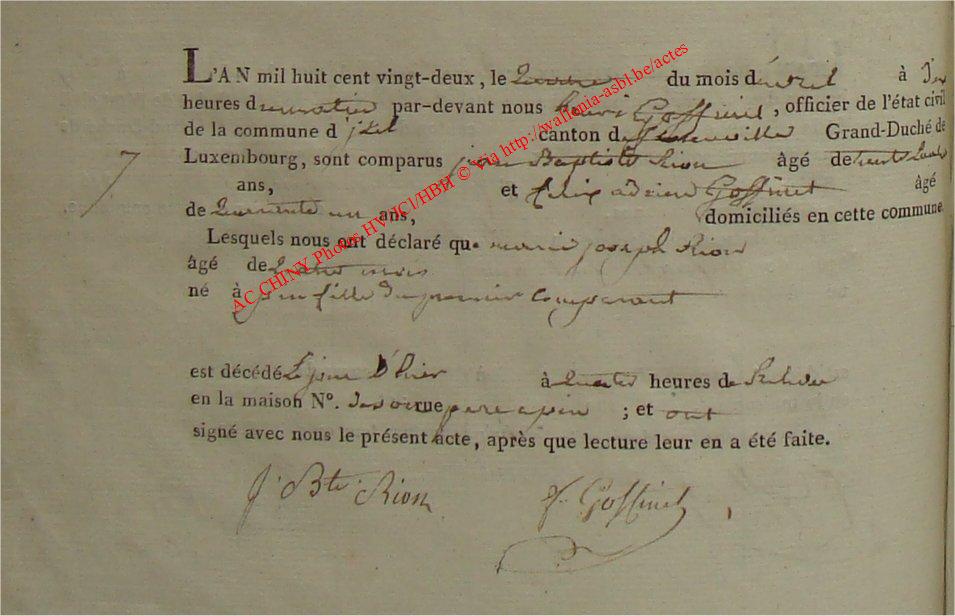 L'AN mil huit cent vingt-deux, le quatorze du mois d'avril à dix
heures du matin par-devant nous henri Goffinet, officier de l'état civil
de la commune d izel canton de florenville Grand-Duché de
7 Luxembourg, sont comparus jean Baptiste Rion âgé de trente
ans, et felix adrien Goffinet âgé
de quarante un ans, domiciliés en cette commune.
Lesquels nous ont déclaré que marie joseph Rion
âgé de quatre mois
né à fille du premier comparant
est décédé Le jour d'hier à quatre heures de
en la maison N°. rue ; et ont
signé avec nous le présent acte, après que lecture leur en a été faite.
J. Bte. Rion f. Goffinet
AC CHINY Photos HVJ/CI/HBH © Via http://wallonia-asbl.be/actes